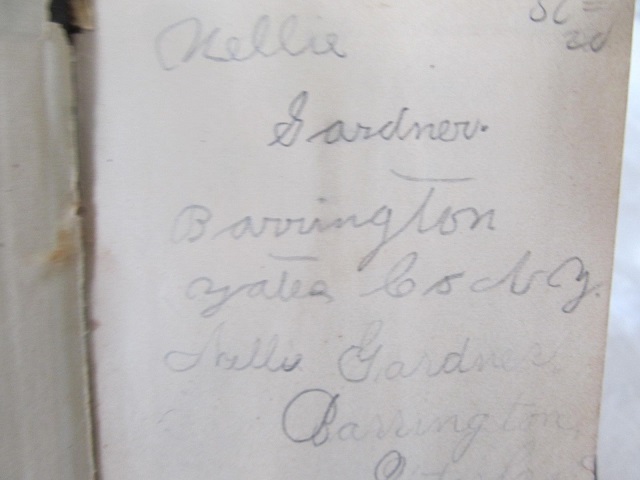 Nellie
Gardner.
Barrington
Yates Co N Y.
Nellie Gardner
Barrington